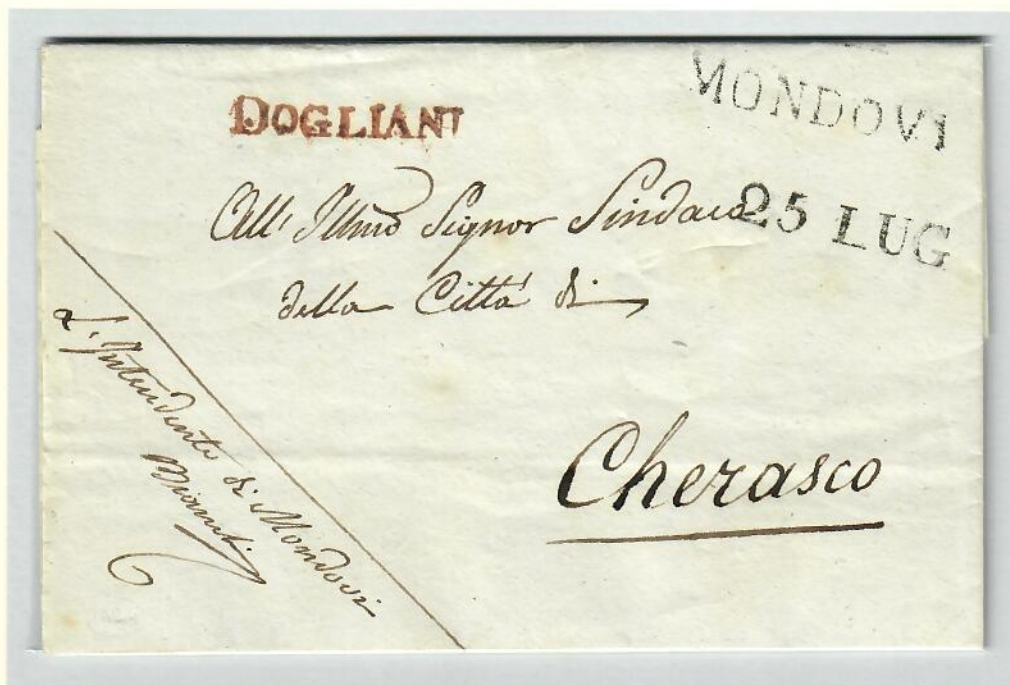 DOGLIANI
MONDOVI
25 LUG
All' Illmo Signor Sindaco
della Città di
Cherasco
L'Intendente di Mondovi